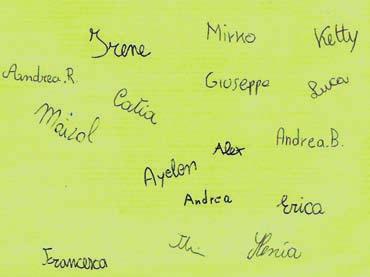 Irene
Mirko
Ketty
Aandrea.R.
Giuseppe
Luca
Catia
Maizol
Andrea.B.
Alex
Ayelon
Andrea
Erica
Francesca